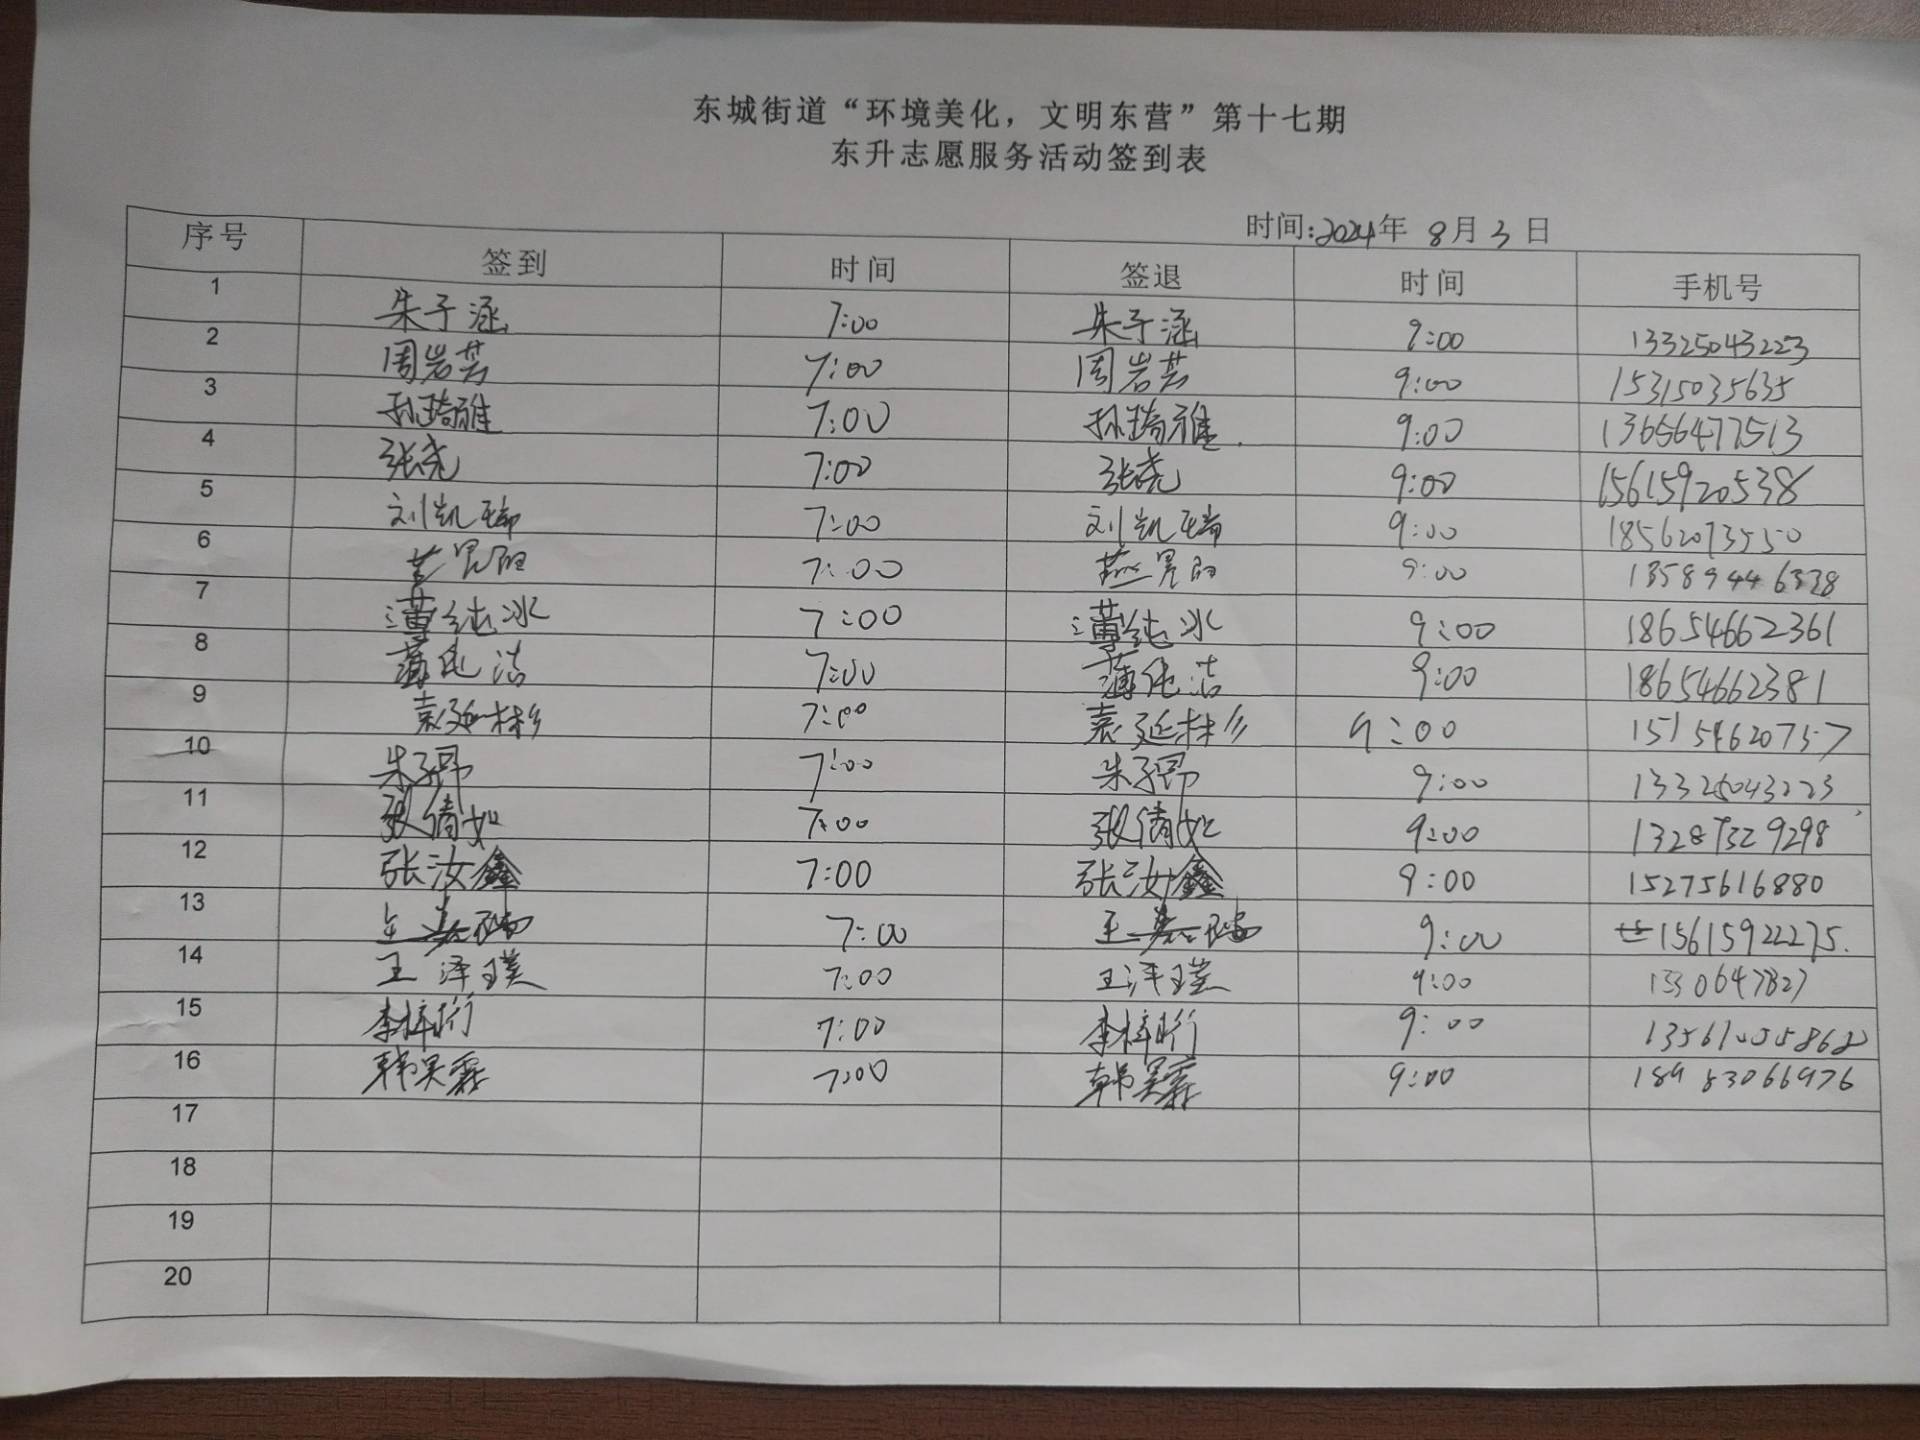 东城街道“环境美化，文明东营”第十七期
东升志愿服务活动签到表
时间:2024年 8月3日
序号 签到 时间 签退 时间 手机号
1 朱子涵 7:00 朱子涵 9:00 13325043223
2 周岩芸 7:00 周岩芸 9:00 15315035635
3 孙琦雅 7:00 孙琦雅 9:00 13656477513
4 张尧 7:00 张尧 9:00 15615920538
5 刘凯瑞 7:00 刘凯瑞 9:00 18562073550
6 7:00 9:00 13589446338
7 薄纯冰 7:00 薄纯冰 9:00 18654662361
8 薄纯洁 7:00 薄纯洁 9:00 18654662381
9 袁延彬 7:00 袁延彬 9:00 15154620757
10 朱子昂 7:00 朱子昂 9:00 13325043223
11 张倩如 7:00 张倩如 9:00 13287329298
12 张汝鑫 7:00 张汝鑫 9:00 15275616880
13 7:00 9:00 15615922275.
14 王泽璞 7:00 王泽璞 9:00
15 李梓珩 7:00 李梓珩 9:00
16 韩昊霖 7:00 韩昊霖 9:00
17
18
19
20